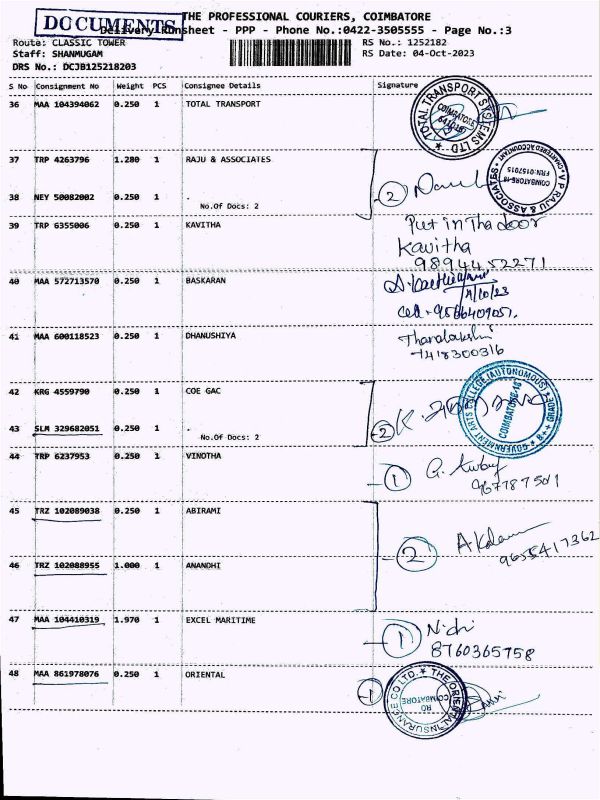 DOCUMENTS
THE PROFESSIONAL COURIERS, COIMBATORE
Delivery Runsheet - PPP - Phone No.:0422-3505555 - Page No.:3
Route: CLASSIC TOWER RS No.: 1252182
Staff: SHANMUGAM RS Date: 04-Oct-2023
DRS No.: DCJB125218203
S No Consignment No Weight PCS Consignee Details Signature
36 MAA 104394062 0.250 1 TOTAL TRANSPORT
TOTAL TRANSPORT SYSTEMS LTD
COIMBATORE
641018
37 TRP 4263796 1.280 1 RAJU & ASSOCIATES
V P RAJU & ASSOCIATES
CHARTERED ACCOUNTANT
COIMBATORE-18
FRN:015701S
38 NEY 50082002 0.250 1 .
No.Of Docs: 2
2
39 TRP 6355006 0.250 1 KAVITHA
Put in Tha door
Kavitha
9894452271
40 MAA 572713570 0.250 1 BASKARAN
4/10/23
Cell - 9566409051.
41 MAA 600118523 0.250 1 DHANUSHIYA
7418300316
42 KRG 4559790 0.250 1 COE GAC
GOVERNMENT ARTS COLLEGE (AUTONOMOUS)
COIMBATORE-18
43 SLM 329682051 0.250 1 .
No.Of Docs: 2
2
44 TRP 6237953 0.250 1 VINOTHA
1
45 TRZ 102089038 0.250 1 ABIRAMI
46 TRZ 102088955 1.000 1 ANANDHI
2
9655417362
47 MAA 104410319 1.970 1 EXCEL MARITIME
1 Nidhi
8760365758
48 MAA 861978076 0.250 1 ORIENTAL
1
THE ORIENTAL INSURANCE CO LTD.
RO
COIMBATORE